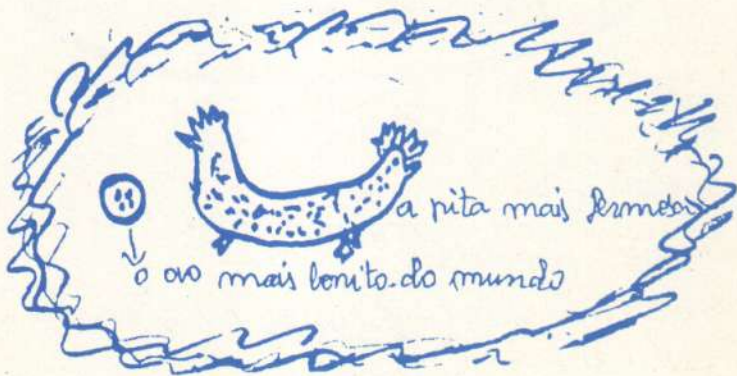 a pita mais fermosa
o ovo mais bonito do mundo